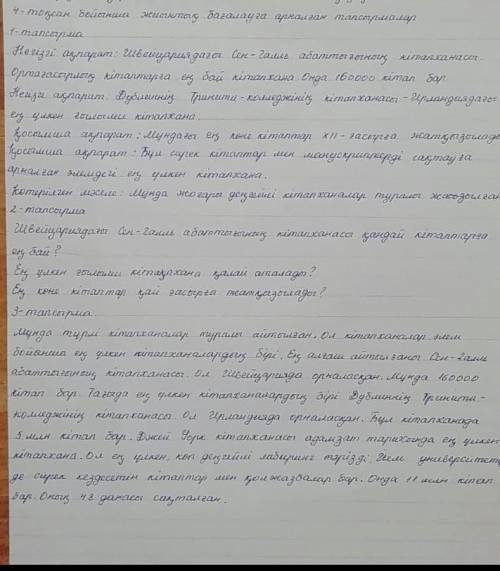 4-тоқсан бойынша жиынтық бағалауға арналған тапсырмалар
1-тапсырма
Негізгі ақпарат: Швейцариядағы Сен-Галль абаттығының кітапханасы.
Ортағасырлық кітаптарға ең бай кітапхана. Онда 160000 кітап бар
Негізгі ақпарат: Дублиннің Тринити-колледжінің кітапханасы - Ирландиядағы
ең үлкен ғылыми кітапхана.
Қосымша ақпарат: Мұндағы ең көне кітаптар XII-ғасырға жатқызылады
Қосымша ақпарат: Бұл сирек кітаптар мен манускриптерді сақтауға
арналған әлемдегі ең үлкен кітапхана.
Көтерілген мәселе: Мұнда жоғары деңгейлі кітапханалар туралы жазылған
2-тапсырма
Швейцариядағы Сен-Галль абаттығының кітапханасы қандай кітаптарға
ең бай?
Ең үлкен ғылыми кітапхана қалай аталады?
Ең көне кітаптар қай ғасырға жатқызылады?
3-тапсырма.
Мұнда түрлі кітапханалар туралы айтылған. Ол кітапханалар әлем
бойынша ең үлкен кітапханалардың бірі. Ең алғаш айтылғаны Сен-Галль
абаттығының кітапханасы. Ол Швейцарияда орналасқан. Мұнда 160000
кітап бар. Тағыда ең үлкен кітапханалардың бірі Дублиннің Тринити-
колледжінің кітапханасы. Ол Ирландияда орналасқан. Бұл кітапханада
5 млн кітап бар. Джей Уокр кітапханасы адамзат тарихында ең үлкен
кітапхана. Ол ең үлкен, көп деңгейлі лабиринт тәрізді. Йель университеті
де сирек кездесетін кітаптар мен қолжазбалар бар. Онда 11 млн кітап
бар. Оның 48 данасы сақталған.